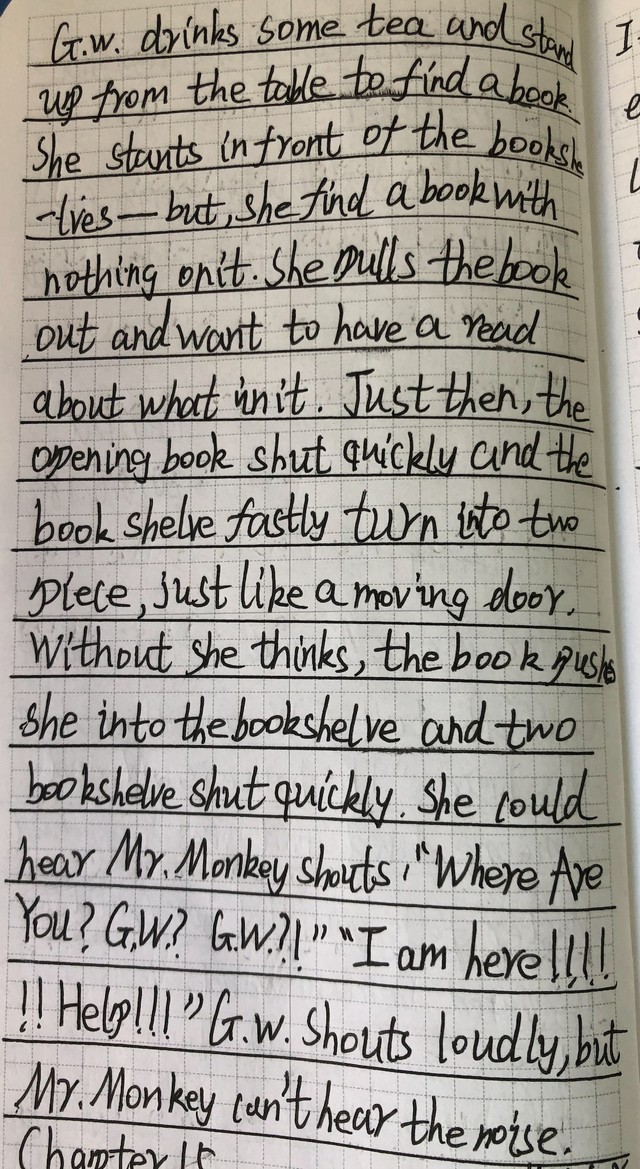 G.W. drinks some tea and stand
up from the table to find a book.
She stants in front of the bookshe
-lves — but, she find a book with
nothing on it. She pulls the book
out and want to have a read
about what in it. Just then, the
opening book shut quickly and the
book shelve fastly turn into two
piece, just like a moving door.
Without she thinks, the book pushs
she into the bookshelve and two
bookshelve shut quickly. She could
hear Mr. Monkey shouts, "Where Are
You? G.W.? G.W.?!" "I am here!!!!
!! Help!!!" G.W. Shouts loudly, but
Mr. Monkey can't hear the noise.
Chapter 15